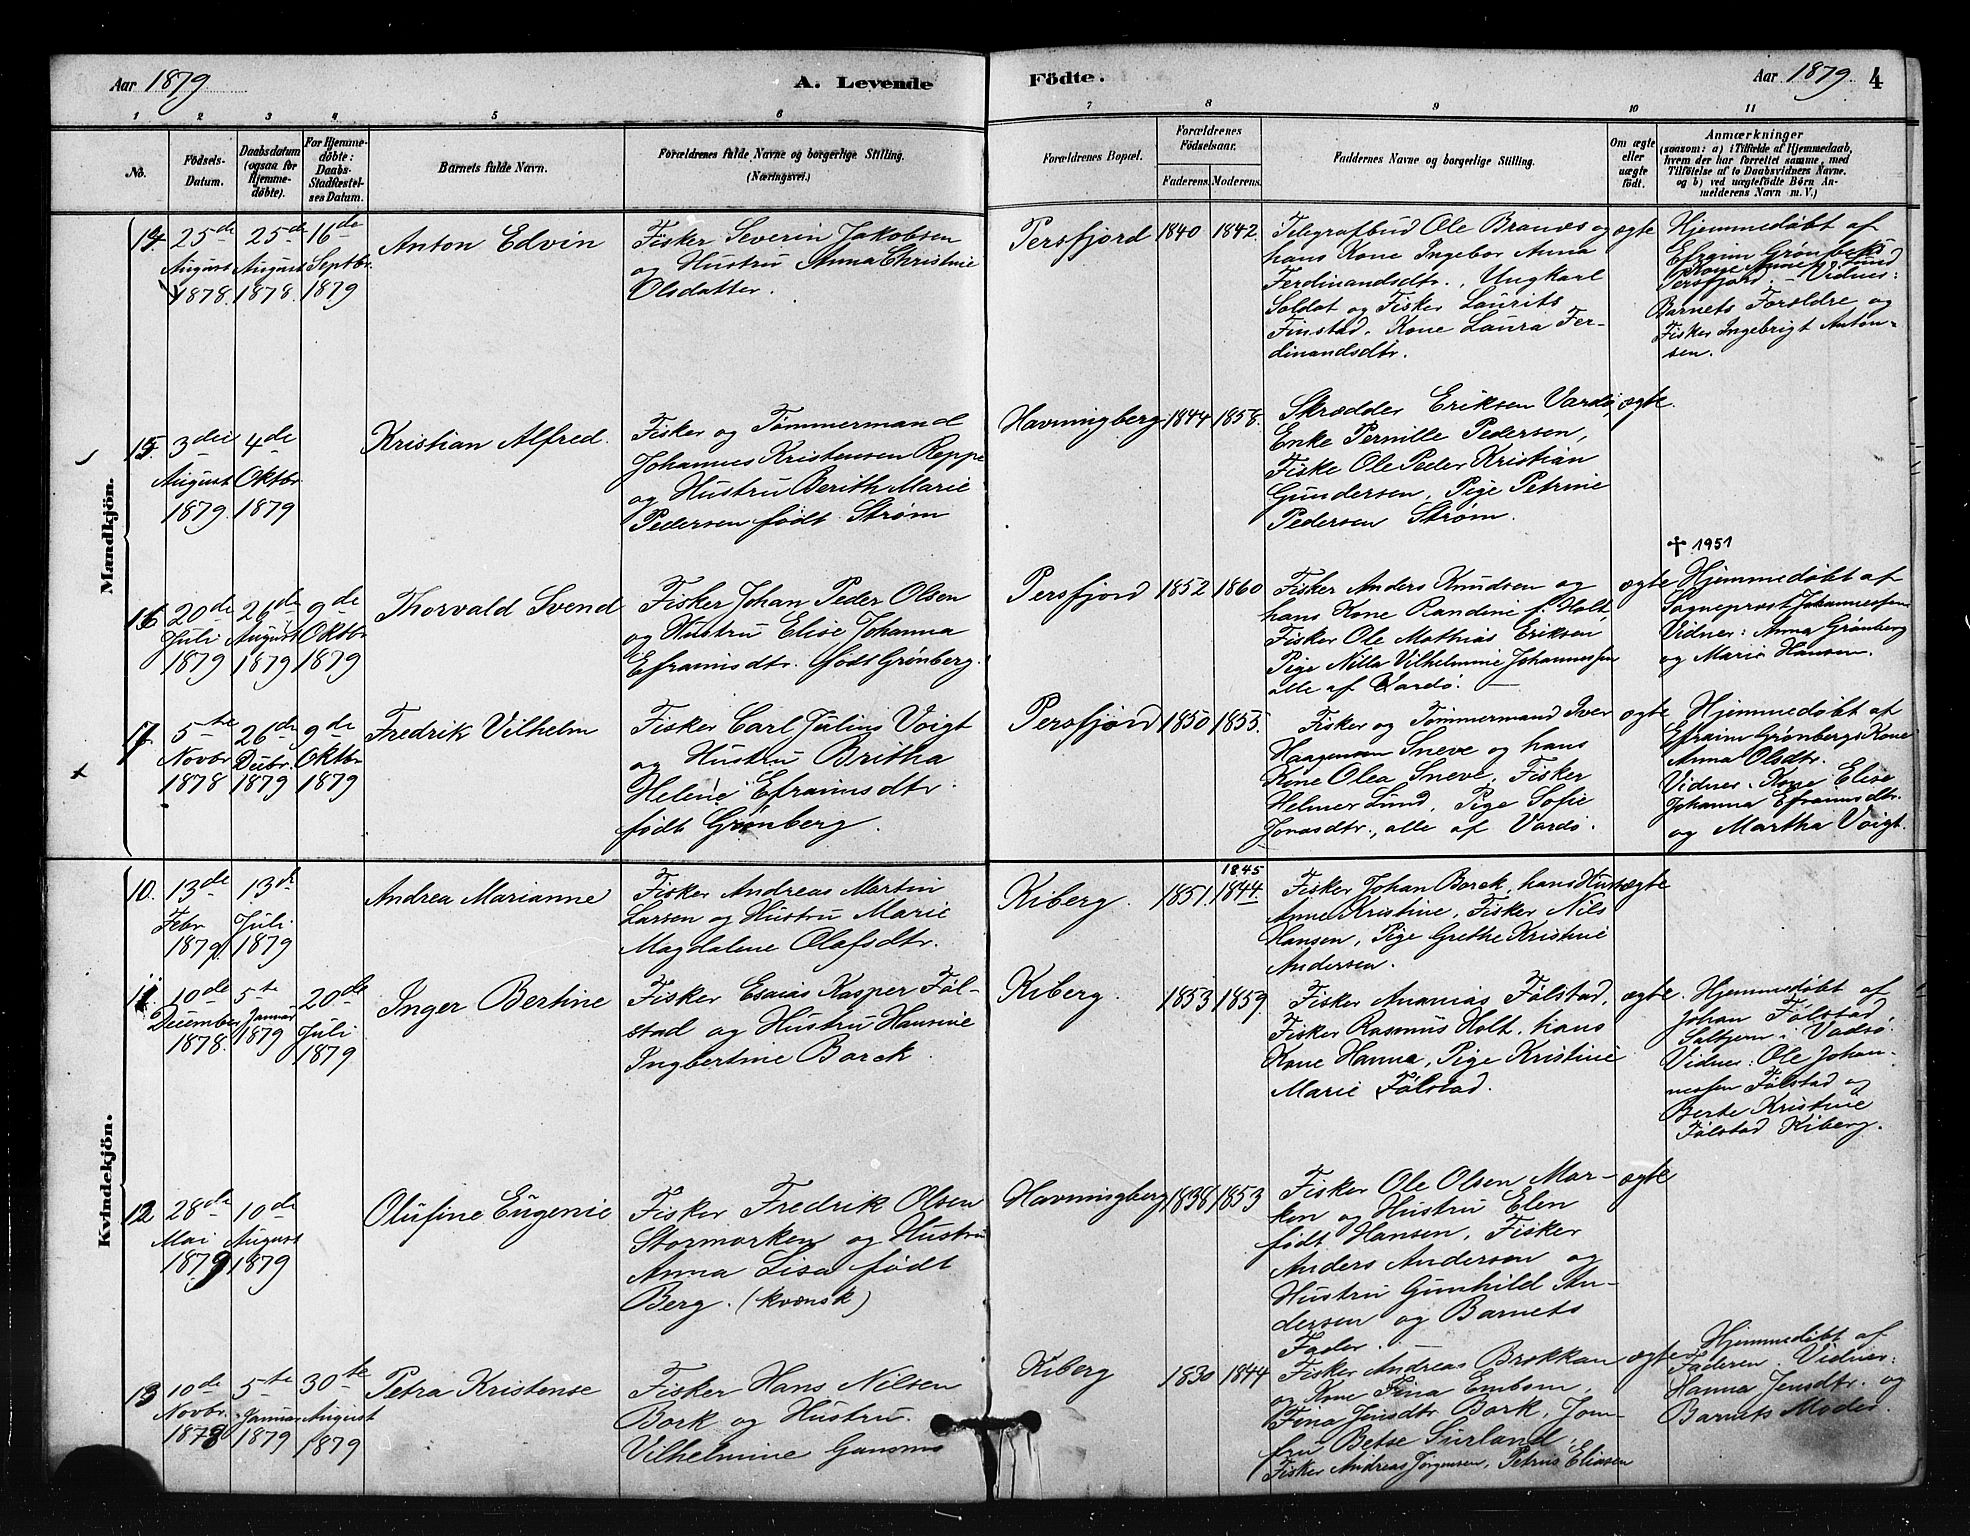 Aar 1879
A. Levende
Födte.
Aar 1879
4
1 2 3 4 5 6 7 8 9 10 11
No.
Födsels-
Datum.
Daabsdatum
(ogsaa for
Hjemme-
døbte).
For Hjemme-
døbte:
Daabs-
Stadfæstel-
ses Datum.
Barnets fulde Navn.
Forældrenes fulde Navne og borgerlige Stilling.
(Næringsvei.)
Forældrenes Bopæl.
Forældrenes
Födselsaar.
Faderens. Moderens.
Faddernes Navne og borgerlige Stilling.
Om ægte
eller
uægte
født.
Anmærkninger
(saasom: a) i Tilfælde af Hjemmedaab,
hvem der har forrettet samme, med
Tilföielse af to Daabsvidners Navne.
og b) ved uægtefödte Börn An-
melderens Navn m. V.)
Mandkjön.
14.
25de
August
1878.
25de
August
1878.
16de
Septbr.
1879
Anton Edvin
Fisker Severin Jakobsen
og Hustru Anna Christine
Olsdatter.
Persfjord
1840
1842.
Telegrafbud Ole Brands og
hans Kone Ingebor Anna
Ferdinandsdtr., Ungkarl
Soldat og Fisker Laurits
Finstad. Kone Laura Fer-
dinandsdtr.
ægte
Hjemmedøbt af
Efraim Grønbergs
Kone Anne Lund
Persfjord. – Vidner:
Barnets Forældre og
Fisker Ingebrigt Anton-
sen.
15.
3die
August
1879.
4de
Oktbr
1879
Kristian Alfred.
Fisker og Tømmermand
Johannes Kristensen Reppe
og Hustru Berith Marie
Pedersen født Strøm
Havningberg
1844
1858.
Skrædder Eriksen Vardø,
Enke Pernille Pedersen,
Fiske Ole Peder Kristian
Gundersen, Pige Petrine
Pedersen Strøm.
ægte.
16
20de
Juli
1879
26de
August
1879
9de
Oktbr
1879
Thorvald Svend
Fisker Johan Peder Olsen
og Hustru Elise Johanna
Eframsdtr. født Grønberg.
Persfjord
1852
1860
Fisker Anders Knudsen og
hans Kone Randine f. Holt,
Fisker Ole Mathias Eriksen
Pige Nilla Vilhelmine Johannessen
alle af Vardø. –
ægte
✝ 1951
Hjemmedøbt af
Sogneprest Johannessen
Vidner: Anna Grønberg
og Marie Hansen.
17.
5te
Novbr
1878
26de
Decbr.
1879
9de
Oktbr
1879
Fredrik Vilhelm
Fisker Carl Julius Voigt
og Hustru Britha
Helene Eframsdtr.
født Grønberg.
Persfjord
1850
1855.
Fisker og Tømmermand Iver
Haagensen Sneve og hans
Kone Olea Sneve. Fisker
Helmer Lund, Pige Sofie
Jonasdtr., alle af Vardø.
ægte
Hjemmedøbt af
Efraim Grønbergs Kone
Anna Olsdtr.
Vidner. Kone Elise
Johanna Eframsdtr.
og Martha Voigt.
Kvindekjön.
10.
13de
Febr
1879.
13de
Juli
1879
Andrea Marianne
Fisker Andreas Martin
Larsen og Hustru Marie
Magdalene Olafsdtr.
Kiberg.
1851.
1845
1844.
Fisker Johan Borck, hans Hustr
Anne Kristine, Fisker Nils
Hansen, Pige Grethe Kristine
Andersen.
ægte
11.
10de
December
1878.
5te
Januar
1879
20de
Juli
1879
Inger Bertine
Fisker Esaias Kasper Fål-
stad og Hustru Hansine
Ingbertine Borck.
Kiberg.
1853
1859.
Fisker Ananias Fålstad,
Fisker Rasmus Holt. hans
Kone Hanna, Pige Kristine
Marie Fålstad.
ægte.
Hjemmedøbt af
Johan Fålstad,
Saltjern. Vadsø.
Vidner: Ole Johan-
nessen Fålstad og
Berte Kristine
Fålstad Kiberg.
12
28de
Mai
1879
10de
August
1879
Olufine Eugenie
Fisker Fredrik Olsen
Stormorken og Hustru
Anna Lisa født
Berg. (kvænsk)
Havningberg
1838
1853
Fisker Ole Olsen Mar-
ken og Hustru Elen
født Hansen, Fisker
Anders Andersen og
Hustru Gunhild An-
dersen og Barnets
Fader. –
ægte
13
10de
Novbr.
1878
5te
Januar
1879
30te
August
1879
Petra Kristense
Fisker Hans Nilsen
Bork og Hustru
Vilhelmine
Kiberg
1830
1844
Fisker Andreas Brokkan
og Kone Fina Embom,
Fina Jensdtr Bork, Jom-
fru Betse Surland,
Fisker Andreas Jørgensen, Petrus Eliasen
ægte
Hjemmedøbt af
Faderen. Vidner:
Hanna Jensdtr. og
Barnets Moder.